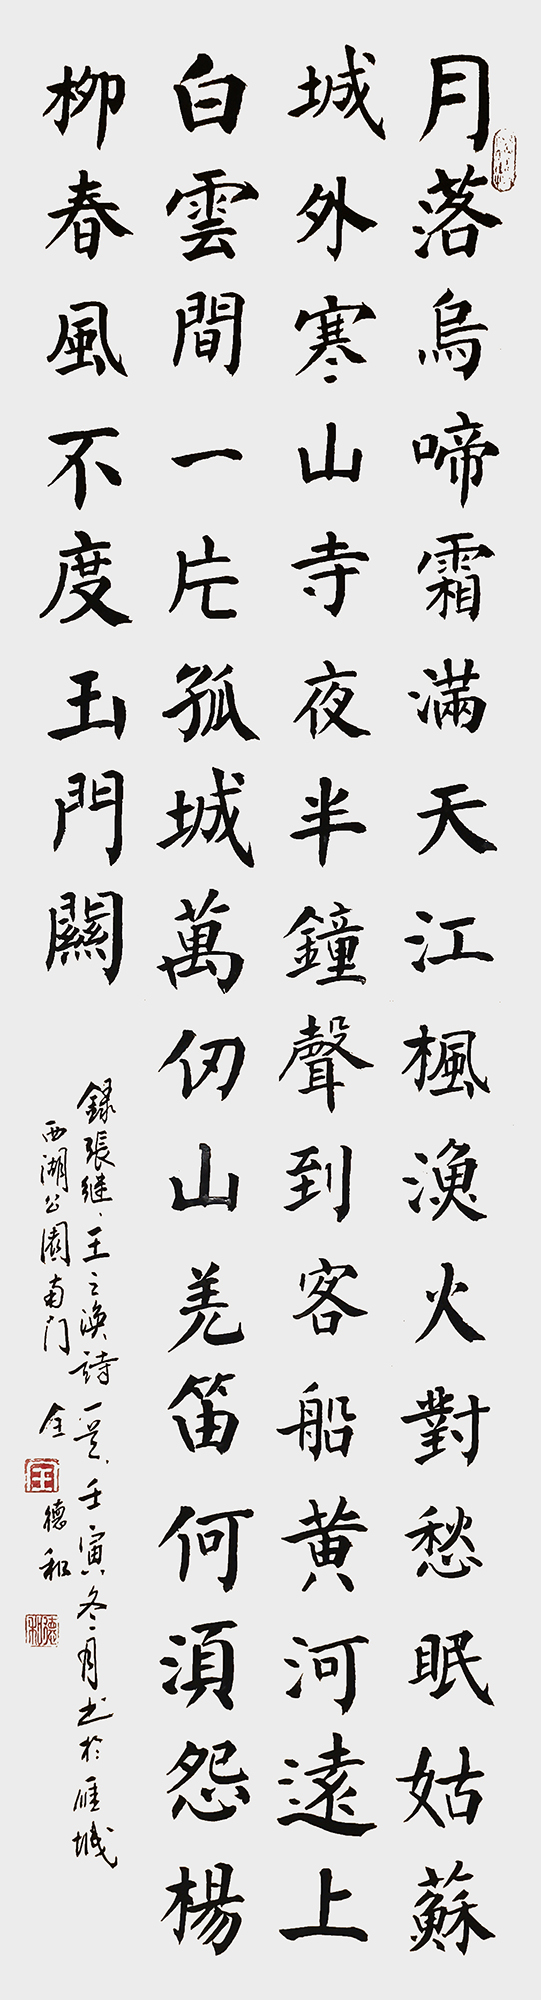 月落烏啼霜滿天江楓漁火對愁眠姑蘇
城外寒山寺夜半鐘聲到客船黄河遠上
白雲間一片孤城萬仞山羌笛何須怨楊
柳春風不度玉門關
録張继、王之渙詩二首、壬寅冬月书於雁城
西湖公園南门 全德和